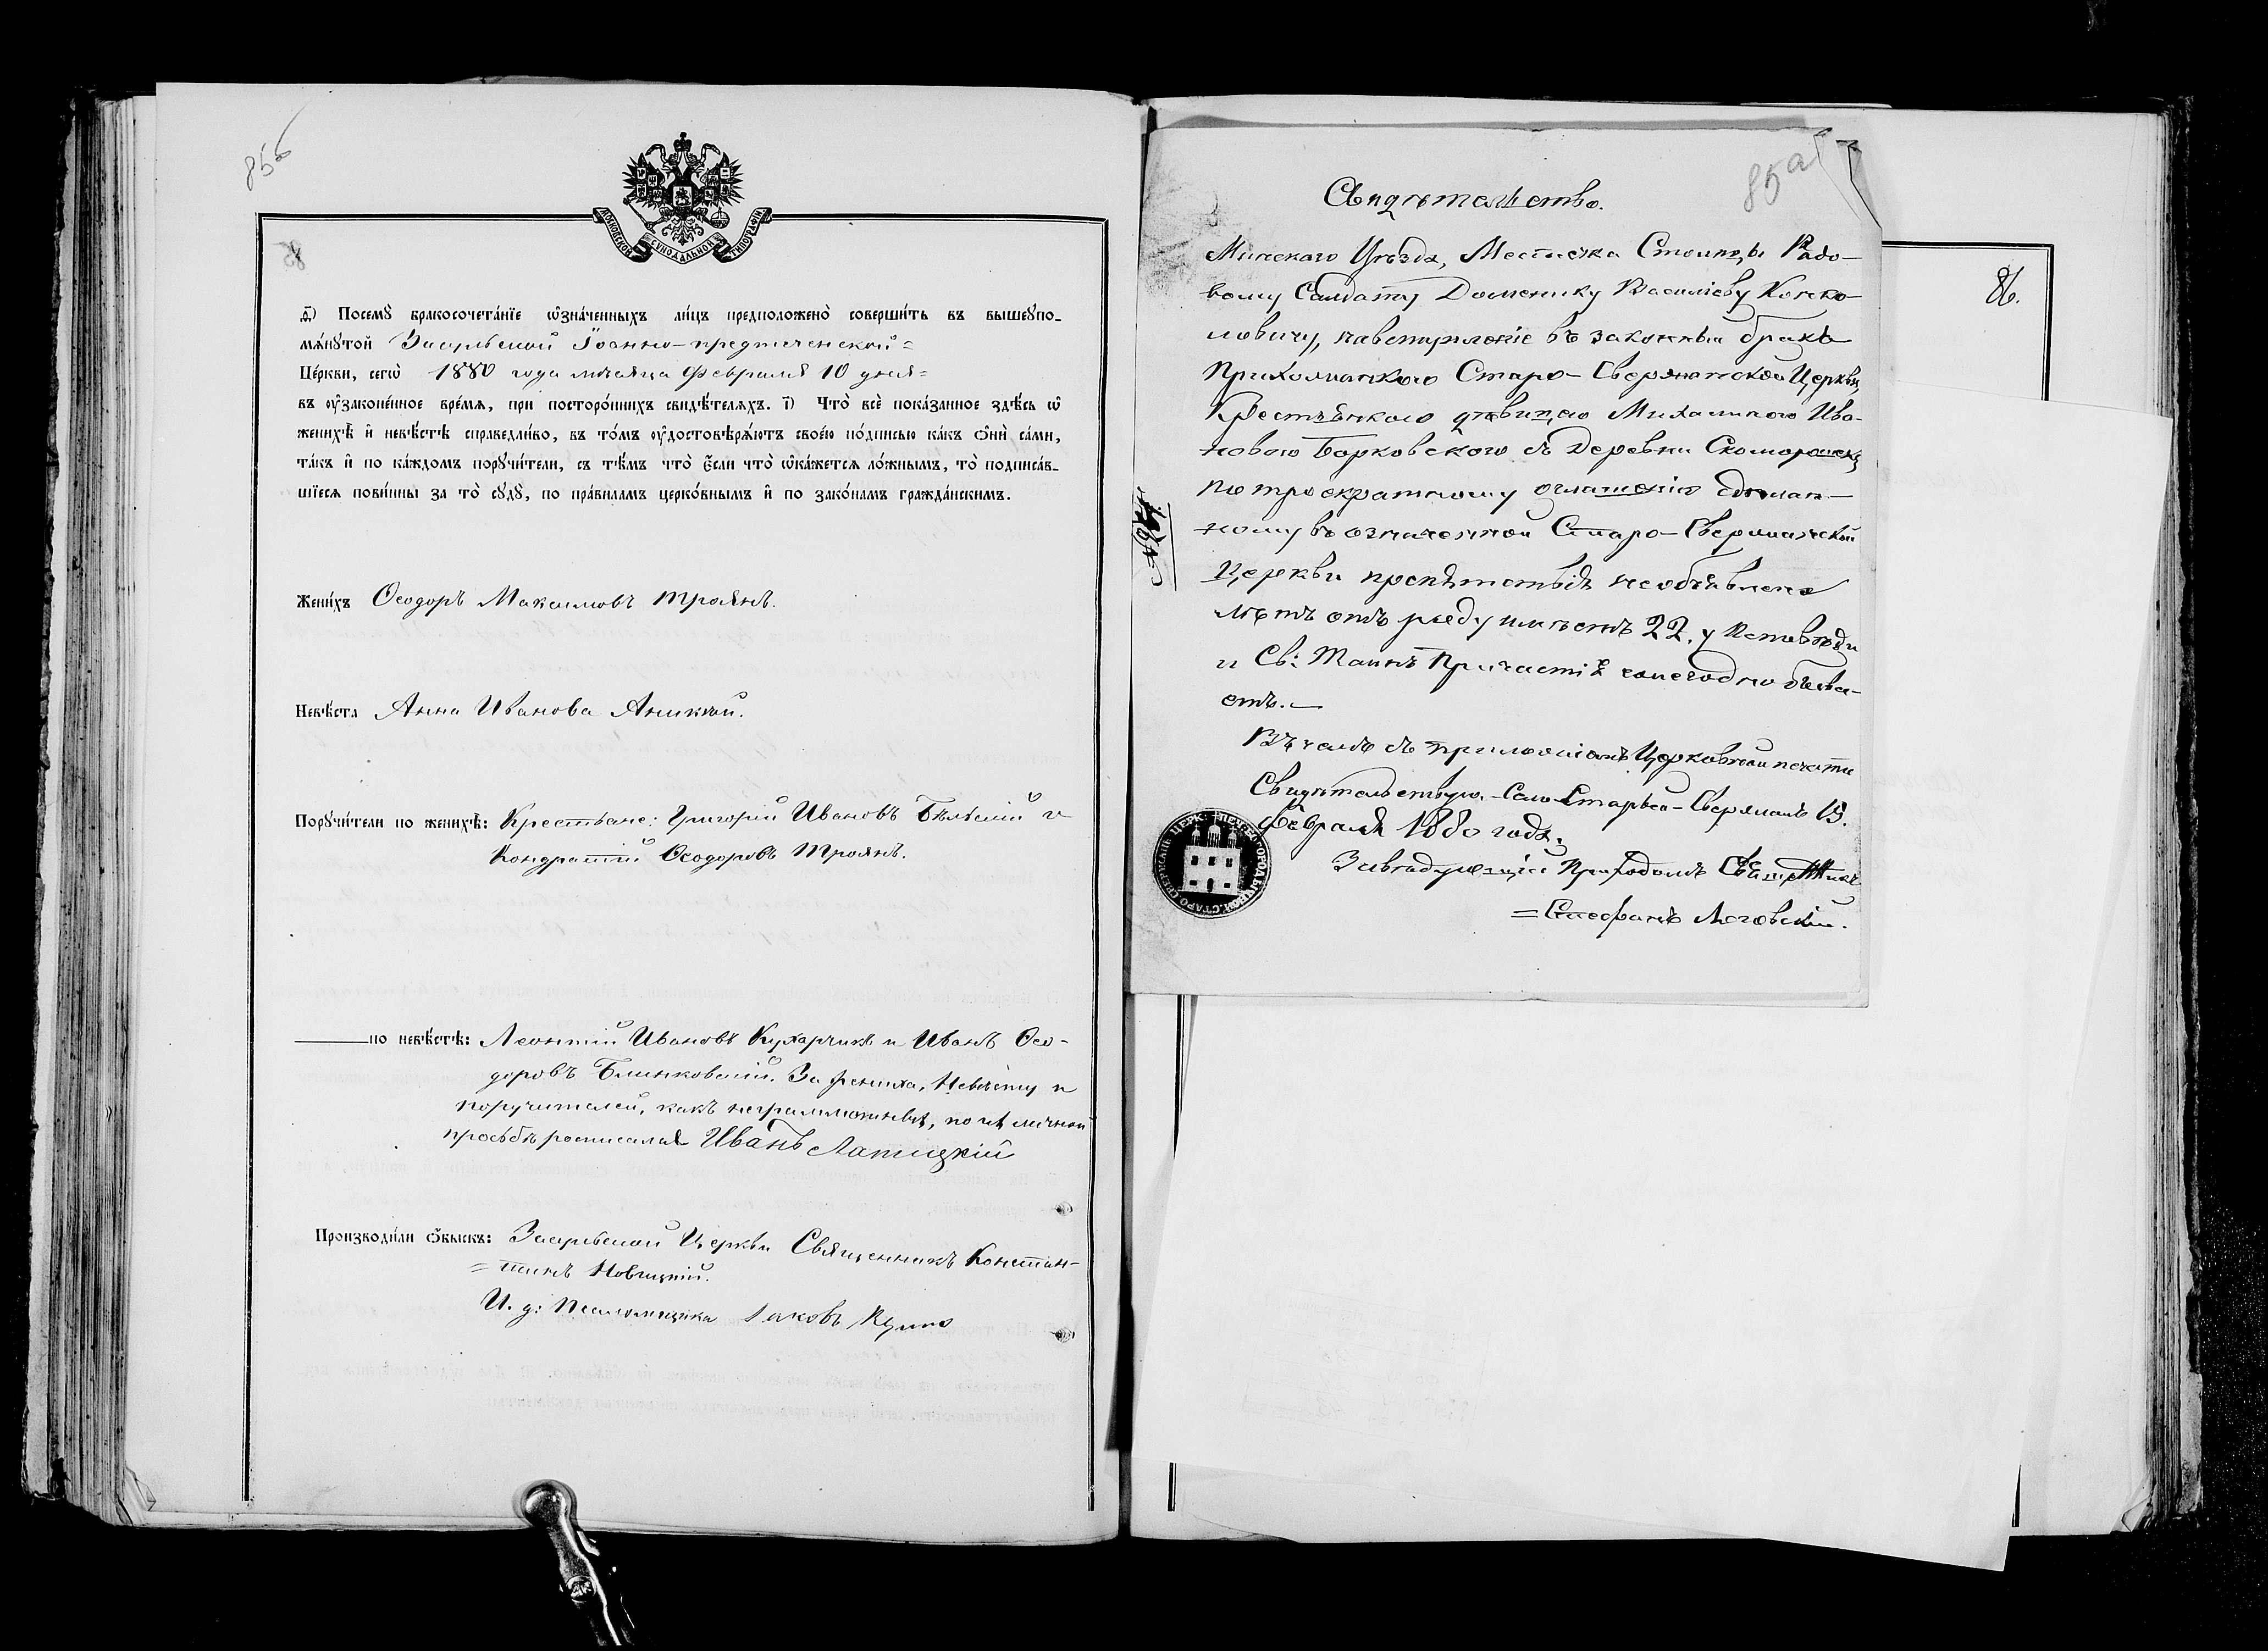 85б
МОСКОВСКОЙ СУНОДАЛЬНОЙ ТИПОГРАФІИ
85
д҃) Посемꙋ̀ бракосочета́нїе ѡ҆зна́ченныхъ ли́цъ предположено̀ соверши́ть въ вышеꙋпо-
мѧ́нꙋтой Засульской Іоанно-предтеченской=
Це́ркви, сегѡ̀ 1880 года мѣсяца Февраля 10 дня=
въ ᲂу҆зако́ненное вре́мѧ, при посторо́ннихъ свидѣ́телѧхъ. і҃) Что̀ всѐ пока́занное здѣ́сь ѡ҆
женихѣ̀ и҆ невѣ́стѣ справедли́во, въ то́мъ ᲂу҆достовѣрѧ́ютъ свое́ю по́дписью ка́къ ѻ҆нѝ са́ми,
та́къ и҆ по ка́ждомъ порꙋчи́тели, съ тѣ́мъ что̀ є҆́сли что̀ ѡ҆ка́жетсѧ ло́жнымъ, то̀ подписа́в-
шїесѧ пови́нны за то̀ сꙋдꙋ̀, по пра́виламъ церко́внымъ и҆ по зако́намъ гражда́нскимъ.
Жени́хъ Ѳеодоръ Максимовъ Троянъ.
Невѣ́ста Анна Иванова Аникѣй.
Порꙋчи́тели по женихѣ̀: Крестьяне: Григорій Ивановъ Бѣльскій и
Кондратій Ѳеодоровъ Троянъ.
по невѣ́стѣ: Леонтій Ивановъ Кухарчикъ и Иванъ Ѳео-
доровъ Блинковскій. За жениха, невѣсту и
поручителей, какъ неграммотныхъ, по ихъ личной
просьбѣ росписался Иванъ Лапицкій
Производи́ли ѻ҆́быскъ: Засульской Церкви Священникъ Констан-
=тинъ Новицкій.
И. д: Псаломщика Іаковъ
85а
Свидѣтельство.
Минскаго Уѣзда, Местечка Столпцы Рядо-
вому Салдату Доменику Василіеву
ловичу, навступленіе въ законный бракъ
Прихожанкою Старо-Свержанской Церкви,
Крестьянкою дѣвицею Михалиною Ива-
новою Борковскою съ Деревни
по троекратному оглашенію сдѣлан-
ному въ означенной Старо-Свержанской
Церкви препятствія необъявлено
лѣтъ отъ роду имѣетъ 22. у Исповѣди
и Св: Таинъ Причастія ежегодно быва-
етъ.—
Въ чемъ съ приложеніемъ Церковной печати
Свидѣтельствую. Село Старый-Свержень 15.
Февраля 1880 года.
Завѣдующій Приходомъ
=Стефанъ
86.